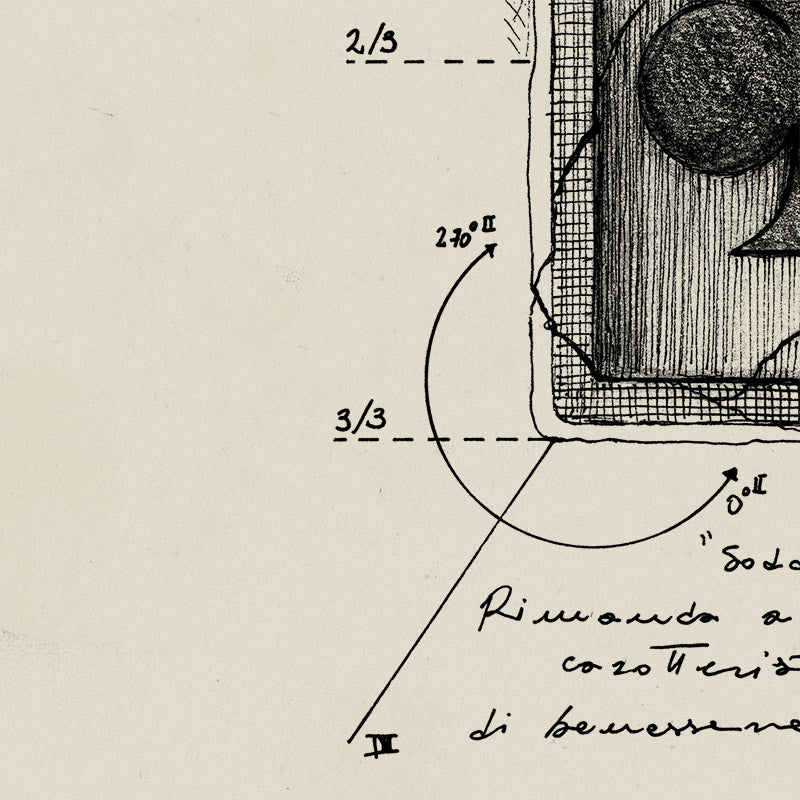 2/3
270° II
3/3
0° II
"Sodd
Rimanda a
caratteris
di benessere
IV